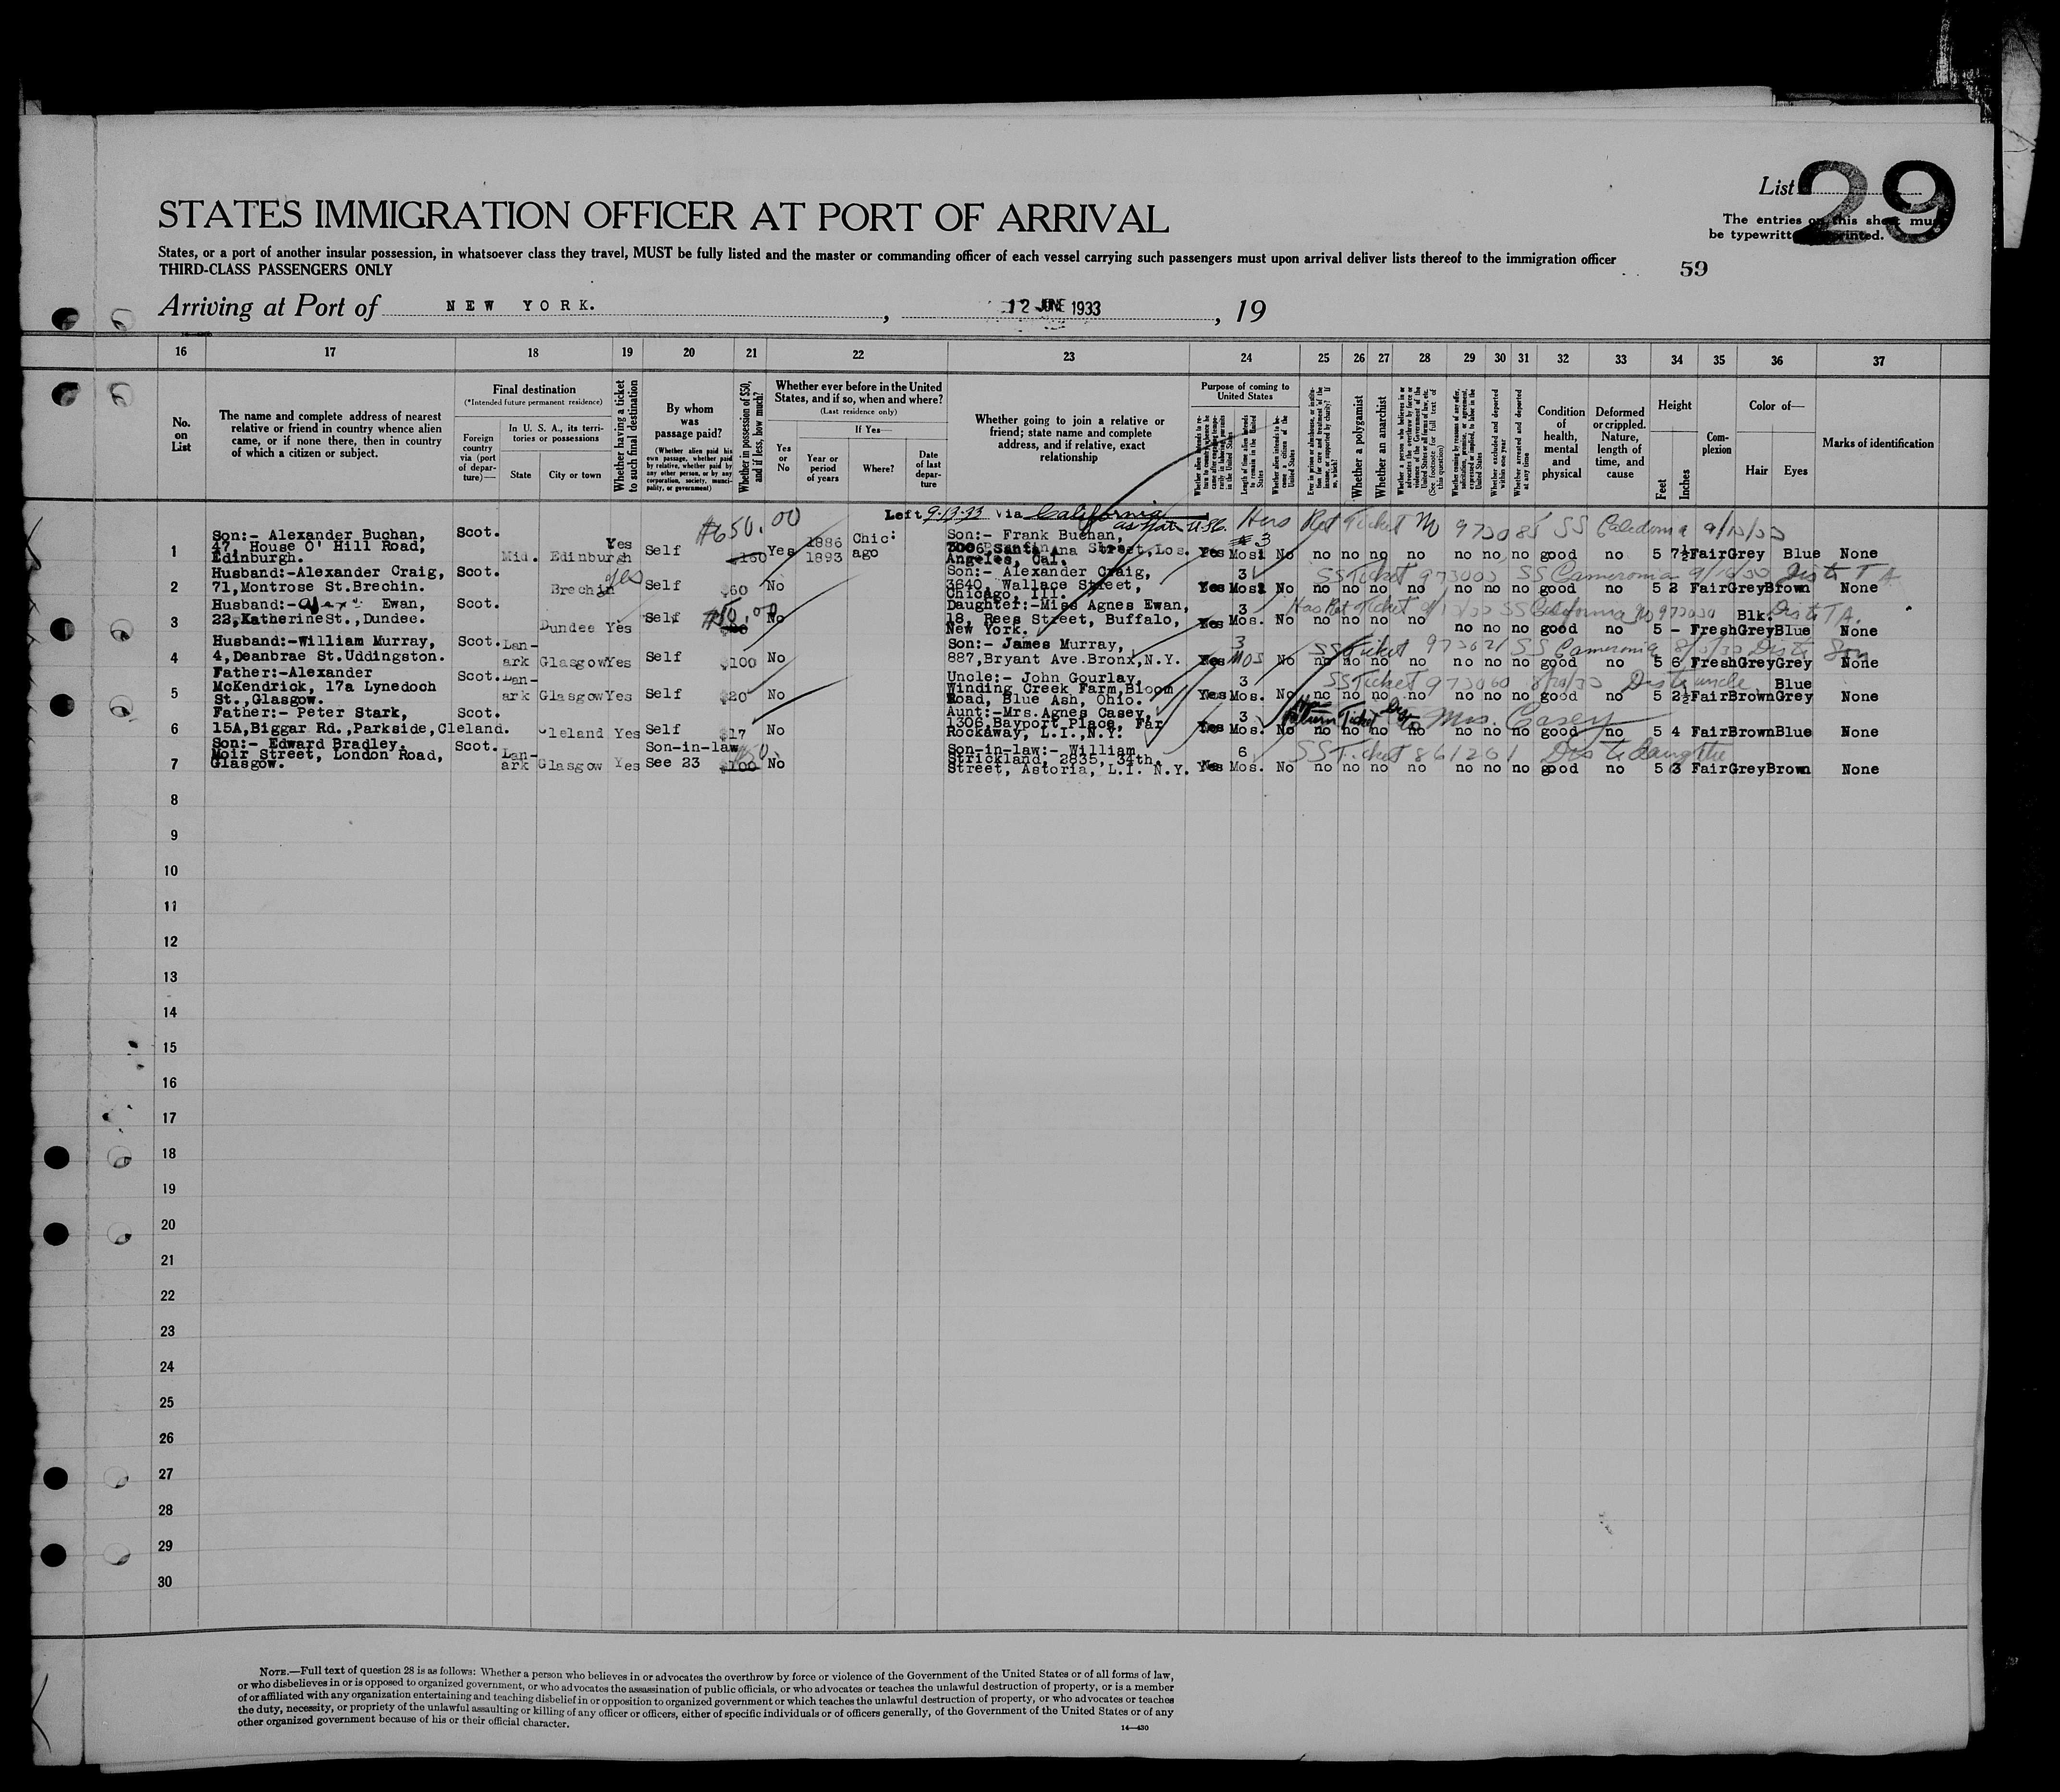 List 29
STATES IMMIGRATION OFFICER AT PORT OF ARRIVAL
The entries on this sheet must
be typewritten or printed.
States, or a port of another insular possession, in whatsoever class they travel, MUST be fully listed and the master or commanding officer of each vessel carrying such passengers must upon arrival deliver lists thereof to the immigration officer
THIRD-CLASS PASSENGERS ONLY
59
Arriving at Port of NEW YORK. , 12 JUNE 1933 , 19
16 17 18 19 20 21 22 23 24 25 26 27 28 29 30 31 32 33 34 35 36 37
No. on List
The name and complete address of nearest relative or friend in country whence alien came, or if none there, then in country of which a citizen or subject.
Final destination
(*Intended future permanent residence)
Foreign country via (port of departure)—
In U. S. A., its territories or possessions
State
City or town
Whether having a ticket to such final destination
By whom was passage paid?
(Whether alien paid his own passage, whether paid by relative, whether paid by any other person, or by any corporation, society, municipality, or government)
Whether in possession of $50, and if less, how much?
Whether ever before in the United States, and if so, when and where?
(Last residence only)
Yes or No
If Yes—
Year or period of years
Where?
Date of last departure
Whether going to join a relative or friend; state name and complete address, and if relative, exact relationship
Purpose of coming to United States
Length of time alien intends to remain in the United States
Whether a polygamist
Whether an anarchist
Whether excluded and deported within one year
Whether arrested and deported at any time
Condition of health, mental and physical
Deformed or crippled. Nature, length of time, and cause
Height
Feet
Inches
Complexion
Color of—
Hair
Eyes
Marks of identification
Left 9-13-33 via California
$650.00
Has Ret Ticket No 973085 SS Caledonia
1 Son:- Alexander Buchan, 47, House O' Hill Road, Edinburgh. Scot. Mid. Edinburgh Yes Self $160 Yes 1886 1893 Chic: ago Son:- Frank Buchan, Santa Ana Street, Los Angeles, Cal. Yes 3 Mos. No no no no no no no no good no 5 7½ Fair Grey Blue None
2 Husband:-Alexander Craig, 71,Montrose St.Brechin. Scot. Brechin Yes Self $60 No Son:- Alexander Craig, 3640, Wallace Street, Chicago, Ill. Yes 3 Mos. No no no no no no no no good no 5 2 Fair Grey Brown None
SS Ticket 973003 SS Cameronia
3 Husband:- Ewan, 22,Katherine St.,Dundee. Scot. Dundee Yes Self No Daughter:-Miss Agnes Ewan, 18, Rees Street, Buffalo, New York. Yes 3 Mos. No no no no no no no no good no 5 - Fresh Blk: Grey Blue None
Has Ret Ticket SS California
4 Husband:-William Murray, 4,Deanbrae St.Uddingston. Scot. Lanark Glasgow Yes Self $100 No Son:- James Murray, 887,Bryant Ave.Bronx,N.Y. Yes 3 Mos No no no no no no no no good no 5 6 Fresh Grey Grey None
SS Ticket 973021 SS Cameronia Dis to Son
5 Father:-Alexander McKendrick, 17a Lynedoch St.,Glasgow. Scot. Lanark Glasgow Yes Self $20 No Uncle:- John Gourlay, Winding Creek Farm,Bloom Road, Blue Ash, Ohio. Yes 3 Mos. No no no no no no no no good no 5 2½ Fair Brown Blue Grey None
SS Ticket 973060 Dis to uncle
6 Father:- Peter Stark, 15A,Biggar Rd.,Parkside,Cleland. Scot. Cleland Yes Self $17 No Aunt:-Mrs.Agnes Casey, 1306,Bayport Place, Far Rockaway, L.I.,N.Y. Yes 3 Mos. No no no no no no no no good no 5 4 Fair Brown Blue None
Return Ticket Dis to Mrs. Casey
7 Son:- Edward Bradley, Moir Street, London Road, Glasgow. Scot. Lanark Glasgow Yes Son-in-law See 23 $100 No Son-in-law:- William Strickland, 2835, 34th. Street, Astoria, L.I. N.Y. Yes 6 Mos. No no no no no no no no good no 5 3 Fair Grey Brown None
SS Ticket 861201 Dis to daughter
8
9
10
11
12
13
14
15
16
17
18
19
20
21
22
23
24
25
26
27
28
29
30
NOTE.—Full text of question 28 is as follows: Whether a person who believes in or advocates the overthrow by force or violence of the Government of the United States or of all forms of law,
or who disbelieves in or is opposed to organized government, or who advocates the assassination of public officials, or who advocates or teaches the unlawful destruction of property, or is a member
of or affiliated with any organization entertaining and teaching disbelief in or opposition to organized government or which teaches the unlawful destruction of property, or who advocates or teaches
the duty, necessity, or propriety of the unlawful assaulting or killing of any officer or officers, either of specific individuals or of officers generally, of the Government of the United States or of any
other organized government because of his or their official character.
14—430